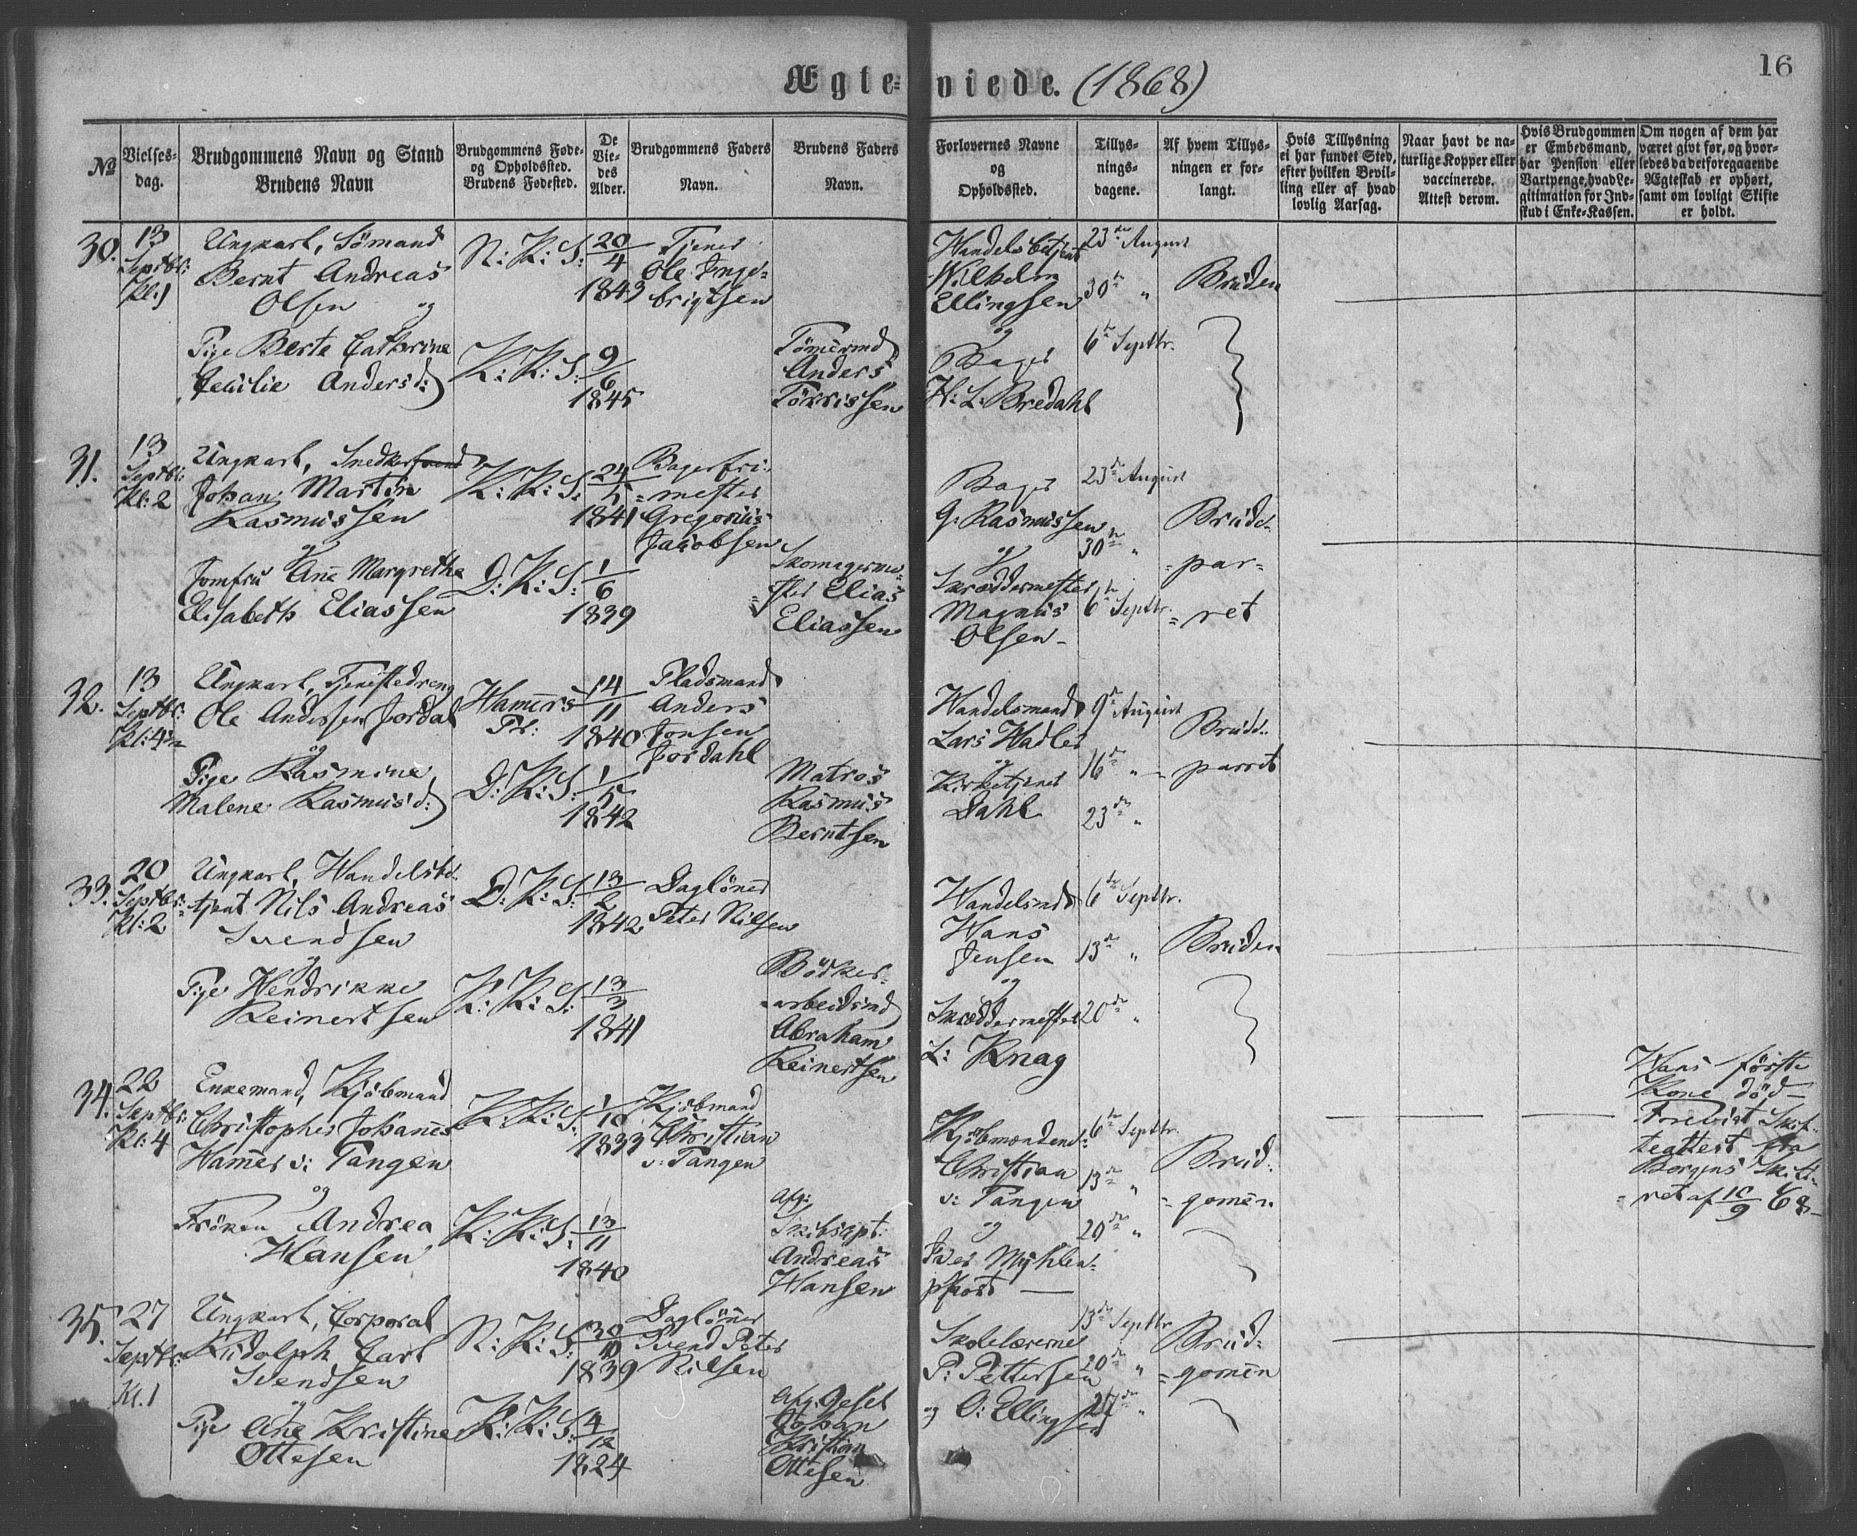 16
Ægteviede. (1868)
No
Vielsesdag.
Brudgommens Navn og Stand
Brudens Navn
Brudgommens Føde-
og Opholdssted.
Brudens Fødested.
De
Vie-
des
Alder.
Brudgommens Faders
Navn.
Brudens Faders
Navn.
Forlovernes Navne
og
Opholdssted.
Tillys-
nings-
dagene.
Af hvem Tillys-
ningen er for-
langt.
Hvis Tillysning
ei har fundet Sted,
efter hvilken Bevil-
ling eller af hvad
lovlig Aarsag.
Naar havt de na-
turlige Kopper eller
vaccinerede.
Attest derom.
Hvis Brudgommen
er Embedsmand,
har Pension eller
Vartpenge, hvad Le-
gitimation for Ind-
skud i Enke-Kassen.
Om nogen af dem har
været givt før, og hvor-
ledes da det foregaaende
Ægteskab er ophørt,
samt om lovligt Skifte
er holdt.
30.
13
Septbr:
Kl: 1
Ungkarl, Sömand
Bernt Andreas
Olsen og
Pige Berte Cathrine
Cecilie Andersd:
N: K: S:
K: K: S:
20/4
1843
9/6
1845
Tjener
Ole Inge-
brigtsen
Tömermd
Anders
Törrissen
Handelsbetjent
Wilhelm
Ellingsen
og
Bager
H: L: Bredahl
23de August
30te "
6te Septbr.
Bruden
31.
13
Septbr:
Kl: 2
Ungkarl, Snedkersvend
Johan Martin
Rasmussen
og
Jomfru Ane Margrethe
Elisabeth Eliassen
K: K: S:
D: K: S:
24/5
1841
1/6
1839
Bagerfri-
mester
Gregorius
Jacobsen
Skomagerme-
ster Elias
Eliassen
Bager
G: Rasmussen
og
Skræddermester
Magnus
Olsen
23de August
30te "
6te Septbr.
Brude-
par-
ret
32.
13
Septbr:
Kl: 4½
Ungkarl, Tjenestedreng
Ole Andersen Jordal
og
Pige Rasmine
Malene Rasmusd:
Hamers
Pr:
D: K: S:
14/11
1840
1/5
1842
Pladsmand
Anders
Jonsen
Jordahl
Matros
Rasmus
Berntsen
Handelsmand
Lars Hadler
og
Kirketjener
Dahl
9de August
16de "
23de "
Brude-
parret
33.
20
Septbr:
Kl: 2
Ungkarl, Handelsbe-
tjent Nils Andreas
Svendsen
og
Pige Hendrikke
Reinertsen
D: K: S:
K: K: S:
13/2
1842
13/3
1841
Daglöner
Peter Nilsen
Bödker-
arbeidsmd
Abraham
Reinertsen
Handelsmd
Hans
Jensen
og
Skræddermester
L: Knag
6te Septbr.
13de "
20de "
Bruden
34.
22
Septbr:
Kl: 4
Enkemand, Kjöbmand
Christopher Johanes
Hamer v: Tangen
og
Fröken Andrea
Hansen
K: K: S:
K: K: S:
1/10
1833
13/11
1840
Kjöbmand
Christian
v: Tangen
Afg:
Skibscapt:
Andreas
Hansen
Kjöbmændene
Christian
v: Tangen
og
Iver Myhlen-
phort
6te Septbr.
13de "
20de "
Brud-
gomen
Hans förste
Kone död
Forevist Skif-
teattest fra
Bergens Skifte-
ret af 10/9 68
35.
27
Septbr:
Kl. 1
Ungkarl, Corporal
Rudolph Carl
Svendsen
og
Pige Ane Kristine
Ottesen
N: K: S:
K: K: S:
30/10
1839
4/12
1824
Daglöner
Svend Peter
Nilsen
Afg. Gesel
Johan
Kristian
Ottesen
Skolelærerne
P: Pettersen
og O: Ellingsen
13de Septbr.
20de "
27de "
Brud-
gomen